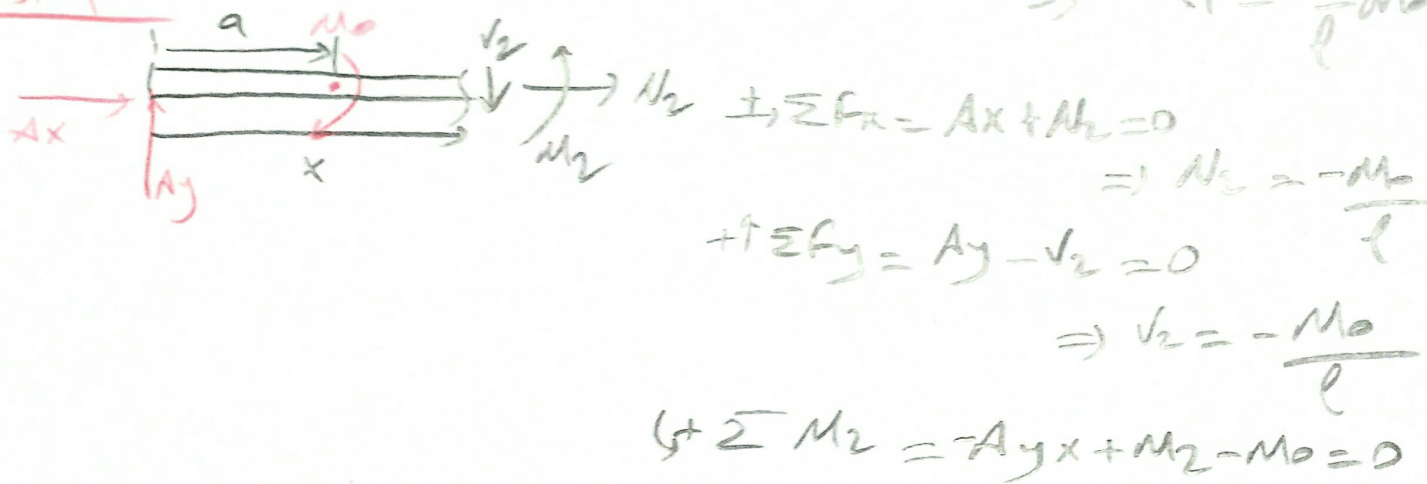 a
M₀
V₂
N₂
M₂
Ax
Ay
x
l
±→ ΣFx = Ax + N₂ = 0
=> N₂ = -M₀/l
+↑ ΣFy = Ay - V₂ = 0
=> V₂ = -M₀/l
↺+ Σ M₂ = -Ay x + M₂ - M₀ = 0